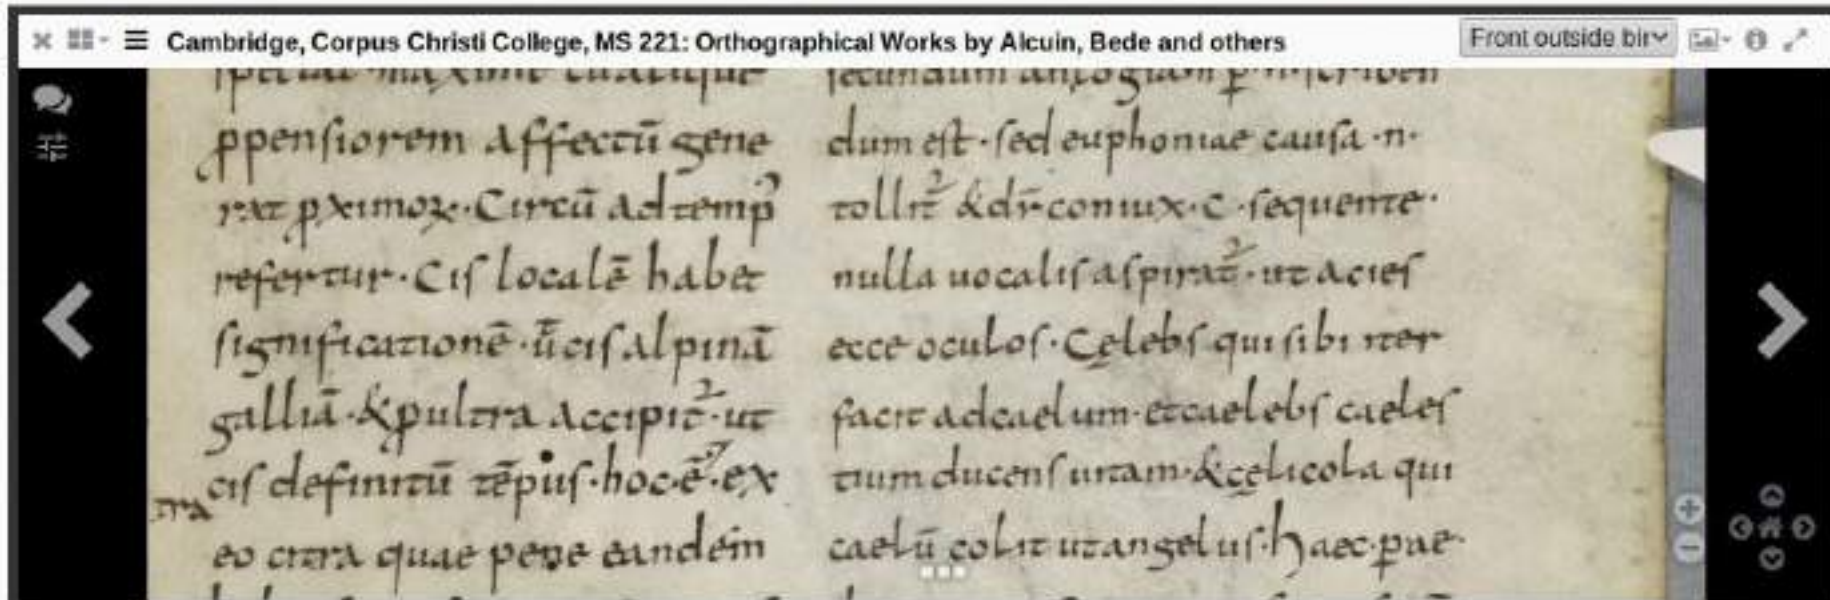 Cambridge, Corpus Christi College, MS 221: Orthographical Works by Alcuin, Bede and others
Front outside bir
ꝓpensiorem affectū gene
rat ꝓximoꝝ· Circū ad temp
refertur· Cis localē habet
significationē· ut cisalpinā
galliā· & pultra accipit᷒· ut
cis definitū tēpus· hoc ē· ex
tra
eo citra quae pene eandem
secundum analogiam scriben
dum est· sed euphoniae causa ·n·
tollit᷒ & dr̄ coniux· c· sequente·
nulla uocalis aspirat᷒· ut acies
ecce oculos· Cęlebs qui sibi iter
facit ad caelum· et caelebs caeles
tium ducens uitam· & cęlicola qui
caelū colit ut angelus· haec· pae